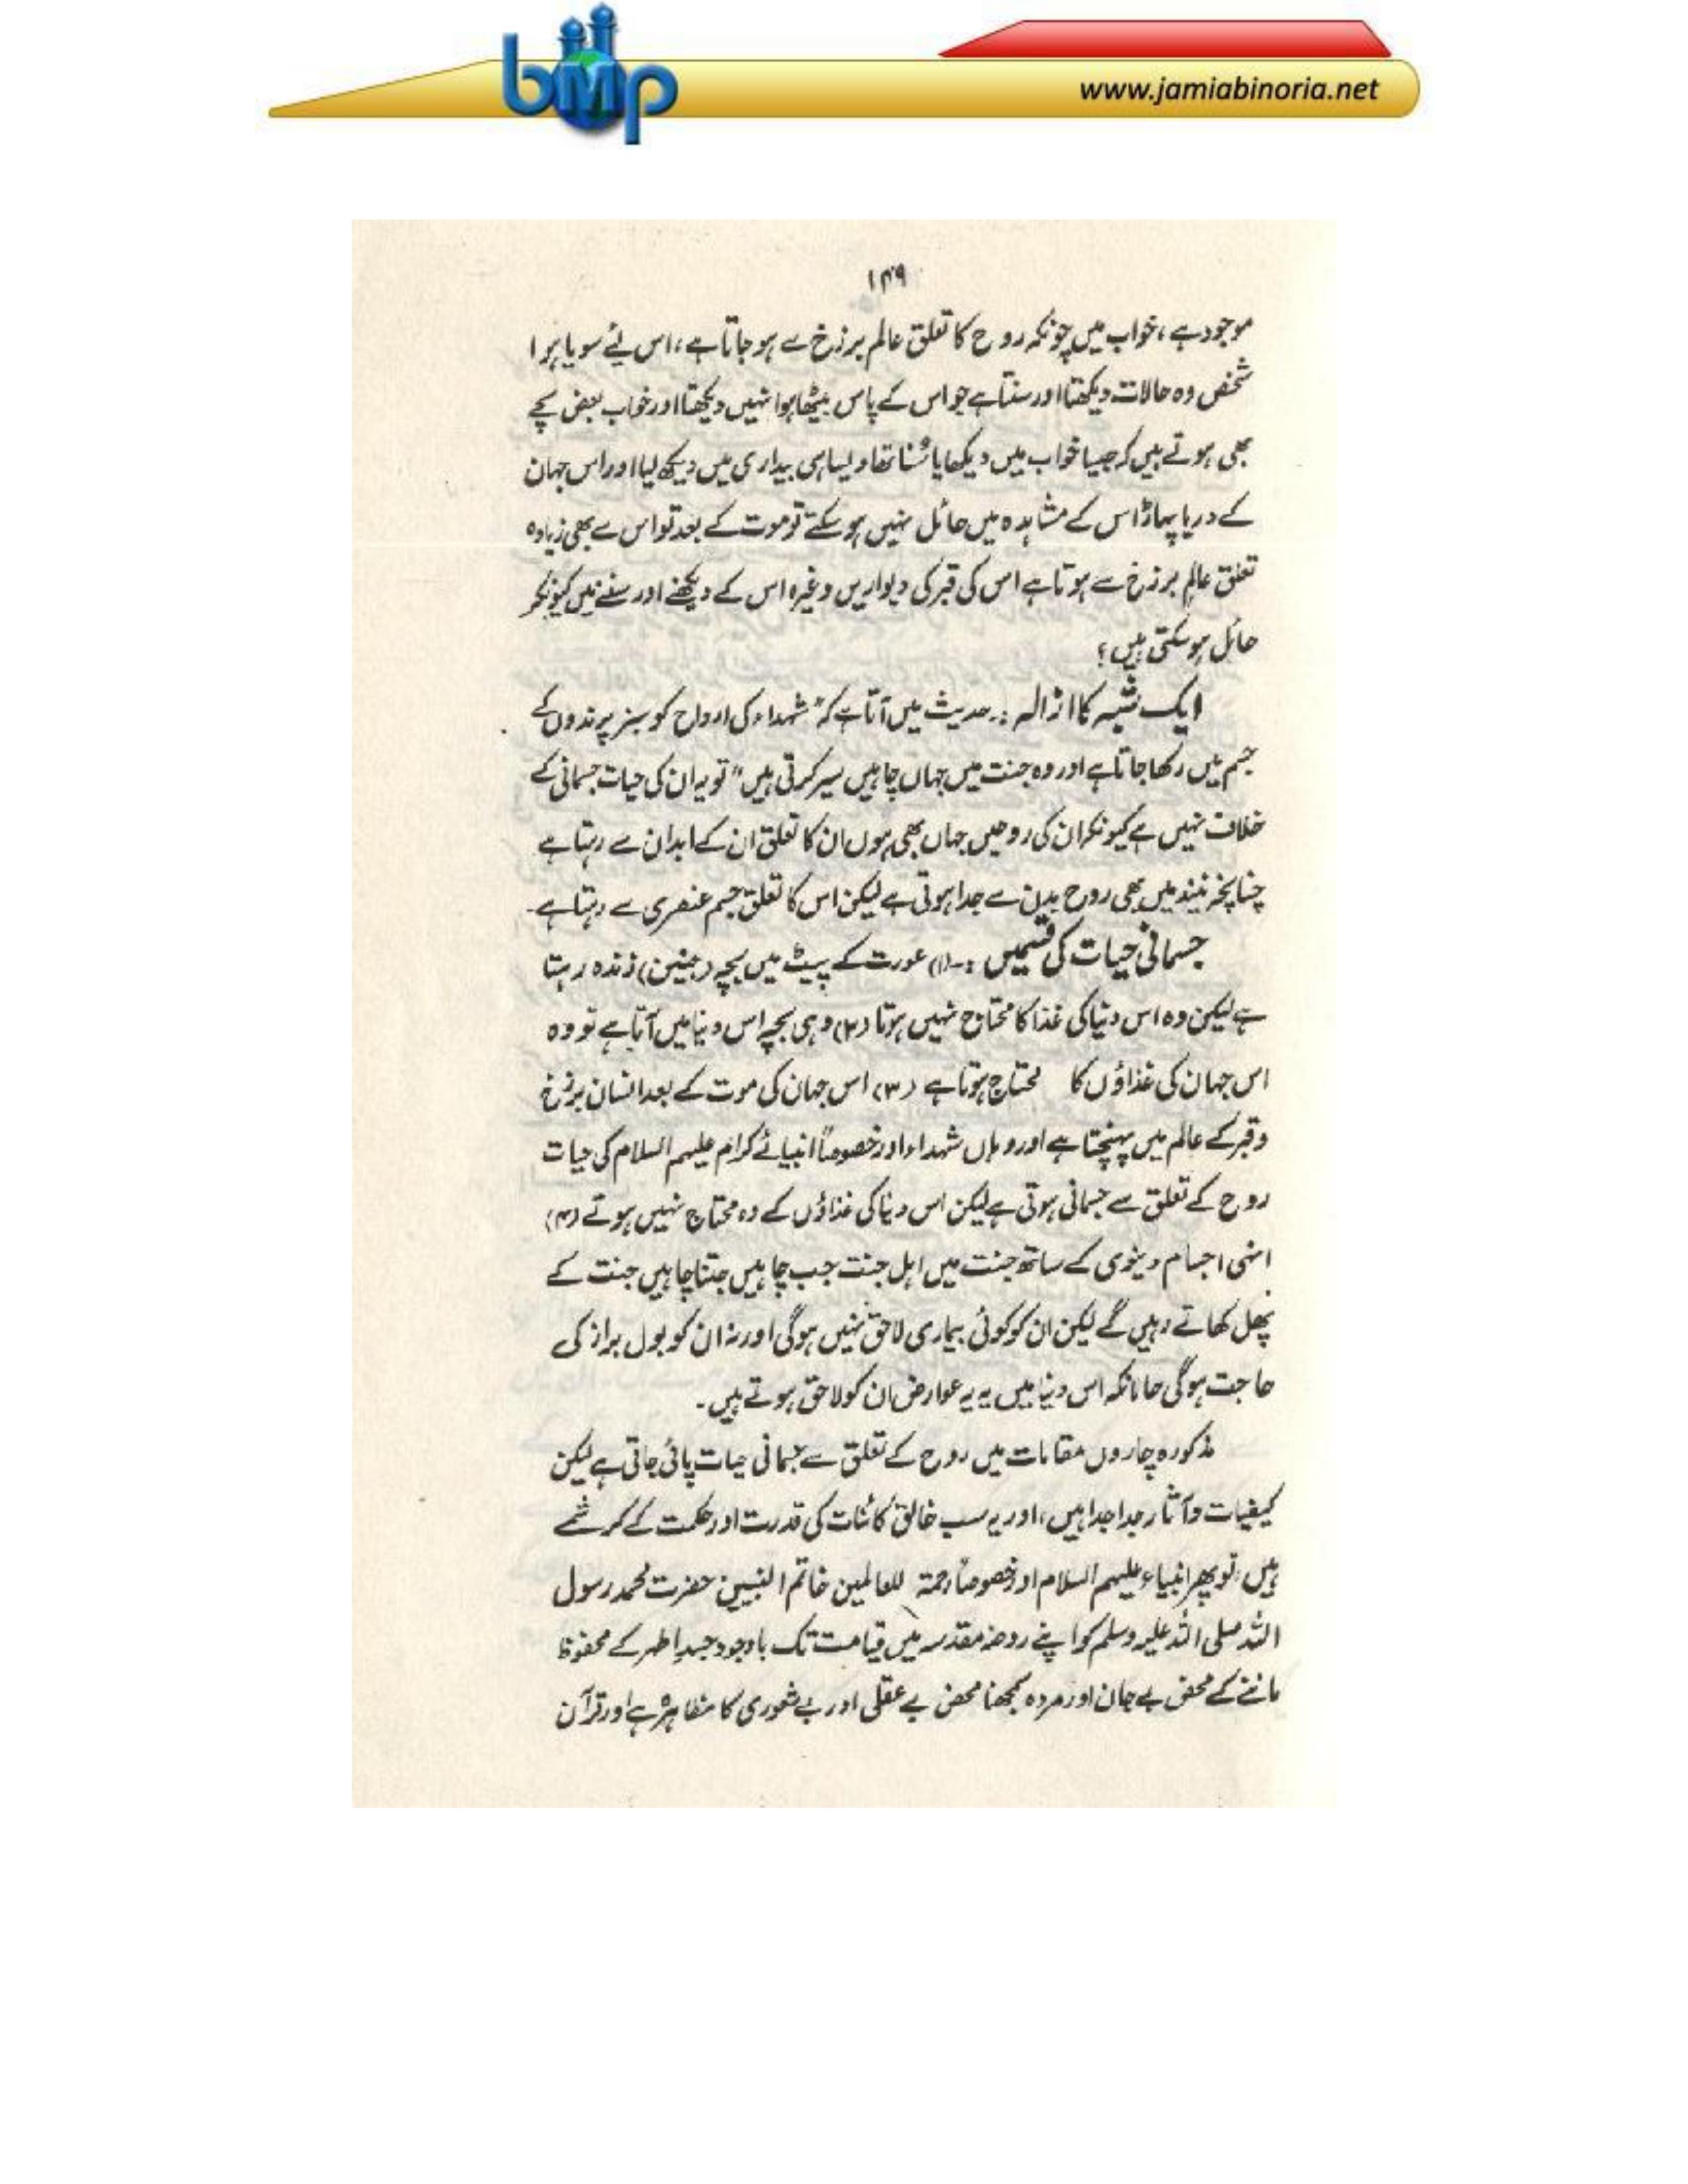 bmp
www.jamiabinoria.net
۱۴۹
موجود ہے ، خواب میں چونکہ روح کا تعلق عالم برزخ سے ہو جاتا ہے ، اس لئے سویا ہوا
شخص وہ حالات دیکھتا اور سنتا ہے جو اس کے پاس بیٹھا ہوا نہیں دیکھتا اور خواب بعض سچے
بھی ہوتے ہیں کہ جیسا خواب میں دیکھا یا سُنا تھا ویسا ہی بیداری میں دیکھ لیا اور اس جہان
کے دریا پہاڑ اس کے مشاہدہ میں حائل نہیں ہو سکتے تو موت کے بعد تو اس سے بھی زیادہ
تعلق عالمِ برزخ سے ہوتا ہے اس کی قبر کی دیواریں وغیرہ اس کے دیکھنے اور سننے میں کیونکر
حائل ہو سکتی ہیں ؟
ایک شبہ کا ازالہ :۔ حدیث میں آتا ہے کہ ”شہداء کی ارواح کو سبز پرندوں کے
جسم میں رکھا جاتا ہے اور وہ جنت میں جہاں چاہیں سیر کرتی ہیں“ تو یہ ان کی حیات جسمانی کے
خلاف نہیں ہے کیونکہ ان کی روحیں جہاں بھی ہوں ان کا تعلق ان کے ابدان سے رہتا ہے
چنانچہ نیند میں بھی روح بدن سے جدا ہوتی ہے لیکن اس کا تعلق جسم عنصری سے رہتا ہے۔
جسمانی حیات کی قسمیں :۔ (۱) عورت کے پیٹ میں بچہ (جنین) زندہ رہتا
ہے لیکن وہ اس دنیا کی غذا کا محتاج نہیں ہوتا (۲) وہی بچہ اس دنیا میں آتا ہے تو وہ
اس جہان کی غذاؤں کا محتاج ہوتا ہے (۳) اس جہان کی موت کے بعد انسان برزخ
و قبر کے عالم میں پہنچتا ہے اور وہاں شہداء اور خصوصاً انبیائے کرام علیہم السلام کی حیات
روح کے تعلق سے جسمانی ہوتی ہے لیکن اس دنیا کی غذاؤں کے وہ محتاج نہیں ہوتے (۴)
انہی اجسام دنیوی کے ساتھ جنت میں اہل جنت جب چاہیں جتنا چاہیں جنت کے
پھل کھاتے رہیں گے لیکن ان کو کوئی بیماری لاحق نہیں ہوگی اور نہ ان کو بول براز کی
حاجت ہوگی حالانکہ اس دنیا میں یہ یہ عوارض ان کو لاحق ہوتے ہیں ۔
مذکورہ چاروں مقامات میں روح کے تعلق سے جسمانی حیات پائی جاتی ہے لیکن
کیفیات و آثار جدا جدا ہیں ، اور یہ سب خالقِ کائنات کی قدرت اور حکمت کے کرشمے
ہیں تو پھر انبیاء علیہم السلام اور خصوصاً رحمۃ للعالمین خاتم النبیین حضرت محمد رسول
اللہ صلی اللہ علیہ وسلم کو اپنے روضہ مقدسہ میں قیامت تک باوجود جسدِ اطہر کے محفوظ
ماننے کے محض بے جان اور مردہ سمجھنا محض بے عقلی اور بے شعوری کا مظاہرہ ہے اور قرآن